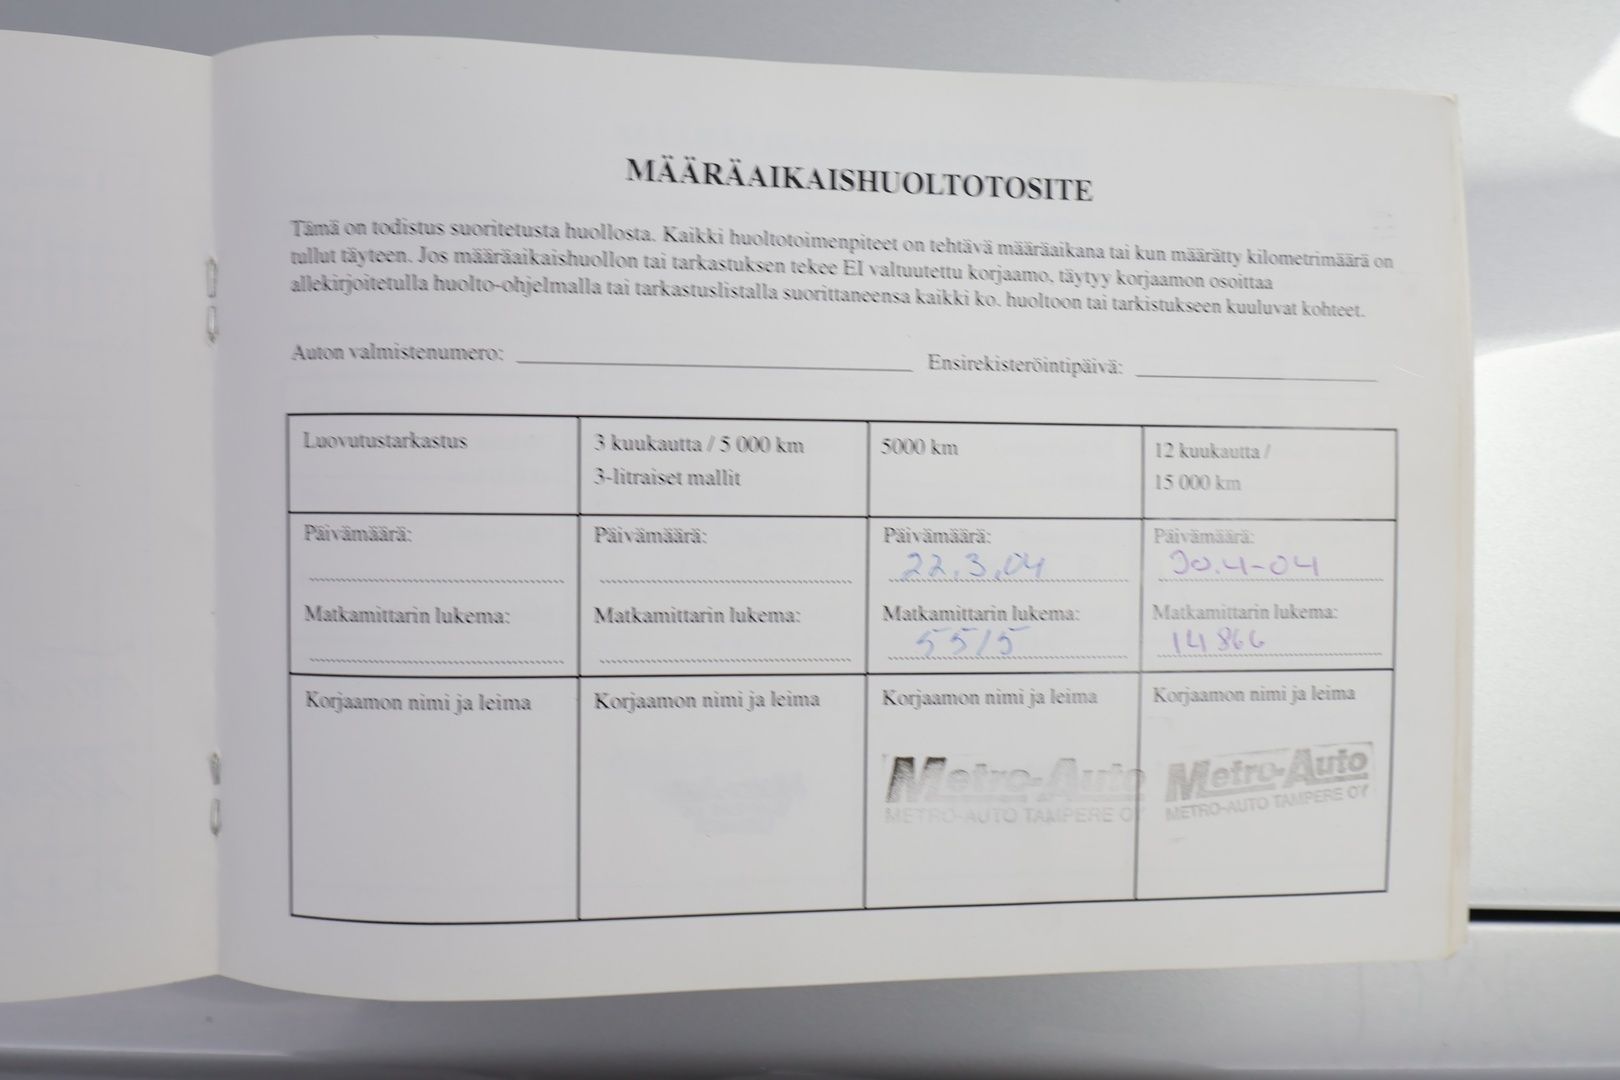 MÄÄRÄAIKAISHUOLTOTOSITE
Tämä on todistus suoritetusta huollosta. Kaikki huoltotoimenpiteet on tehtävä määräaikana tai kun määrätty kilometrimäärä on
tullut täyteen. Jos määräaikaishuollon tai tarkastuksen tekee EI valtuutettu korjaamo, täytyy korjaamon osoittaa
allekirjoitetulla huolto-ohjelmalla tai tarkastuslistalla suorittaneensa kaikki ko. huoltoon tai tarkistukseen kuuluvat kohteet.
Auton valmistenumero: Ensirekisteröintipäivä:
Luovutustarkastus
3 kuukautta / 5 000 km
3-litraiset mallit
5000 km
12 kuukautta /
15 000 km
Päivämäärä:
Päivämäärä:
Päivämäärä:
22.3.04
Päivämäärä:
30.4-04
Matkamittarin lukema:
Matkamittarin lukema:
Matkamittarin lukema:
5515
Matkamittarin lukema:
14866
Korjaamon nimi ja leima
Korjaamon nimi ja leima
Korjaamon nimi ja leima
Metro-Auto
METRO-AUTO TAMPERE OY
Korjaamon nimi ja leima
Metro-Auto
METRO-AUTO TAMPERE OY